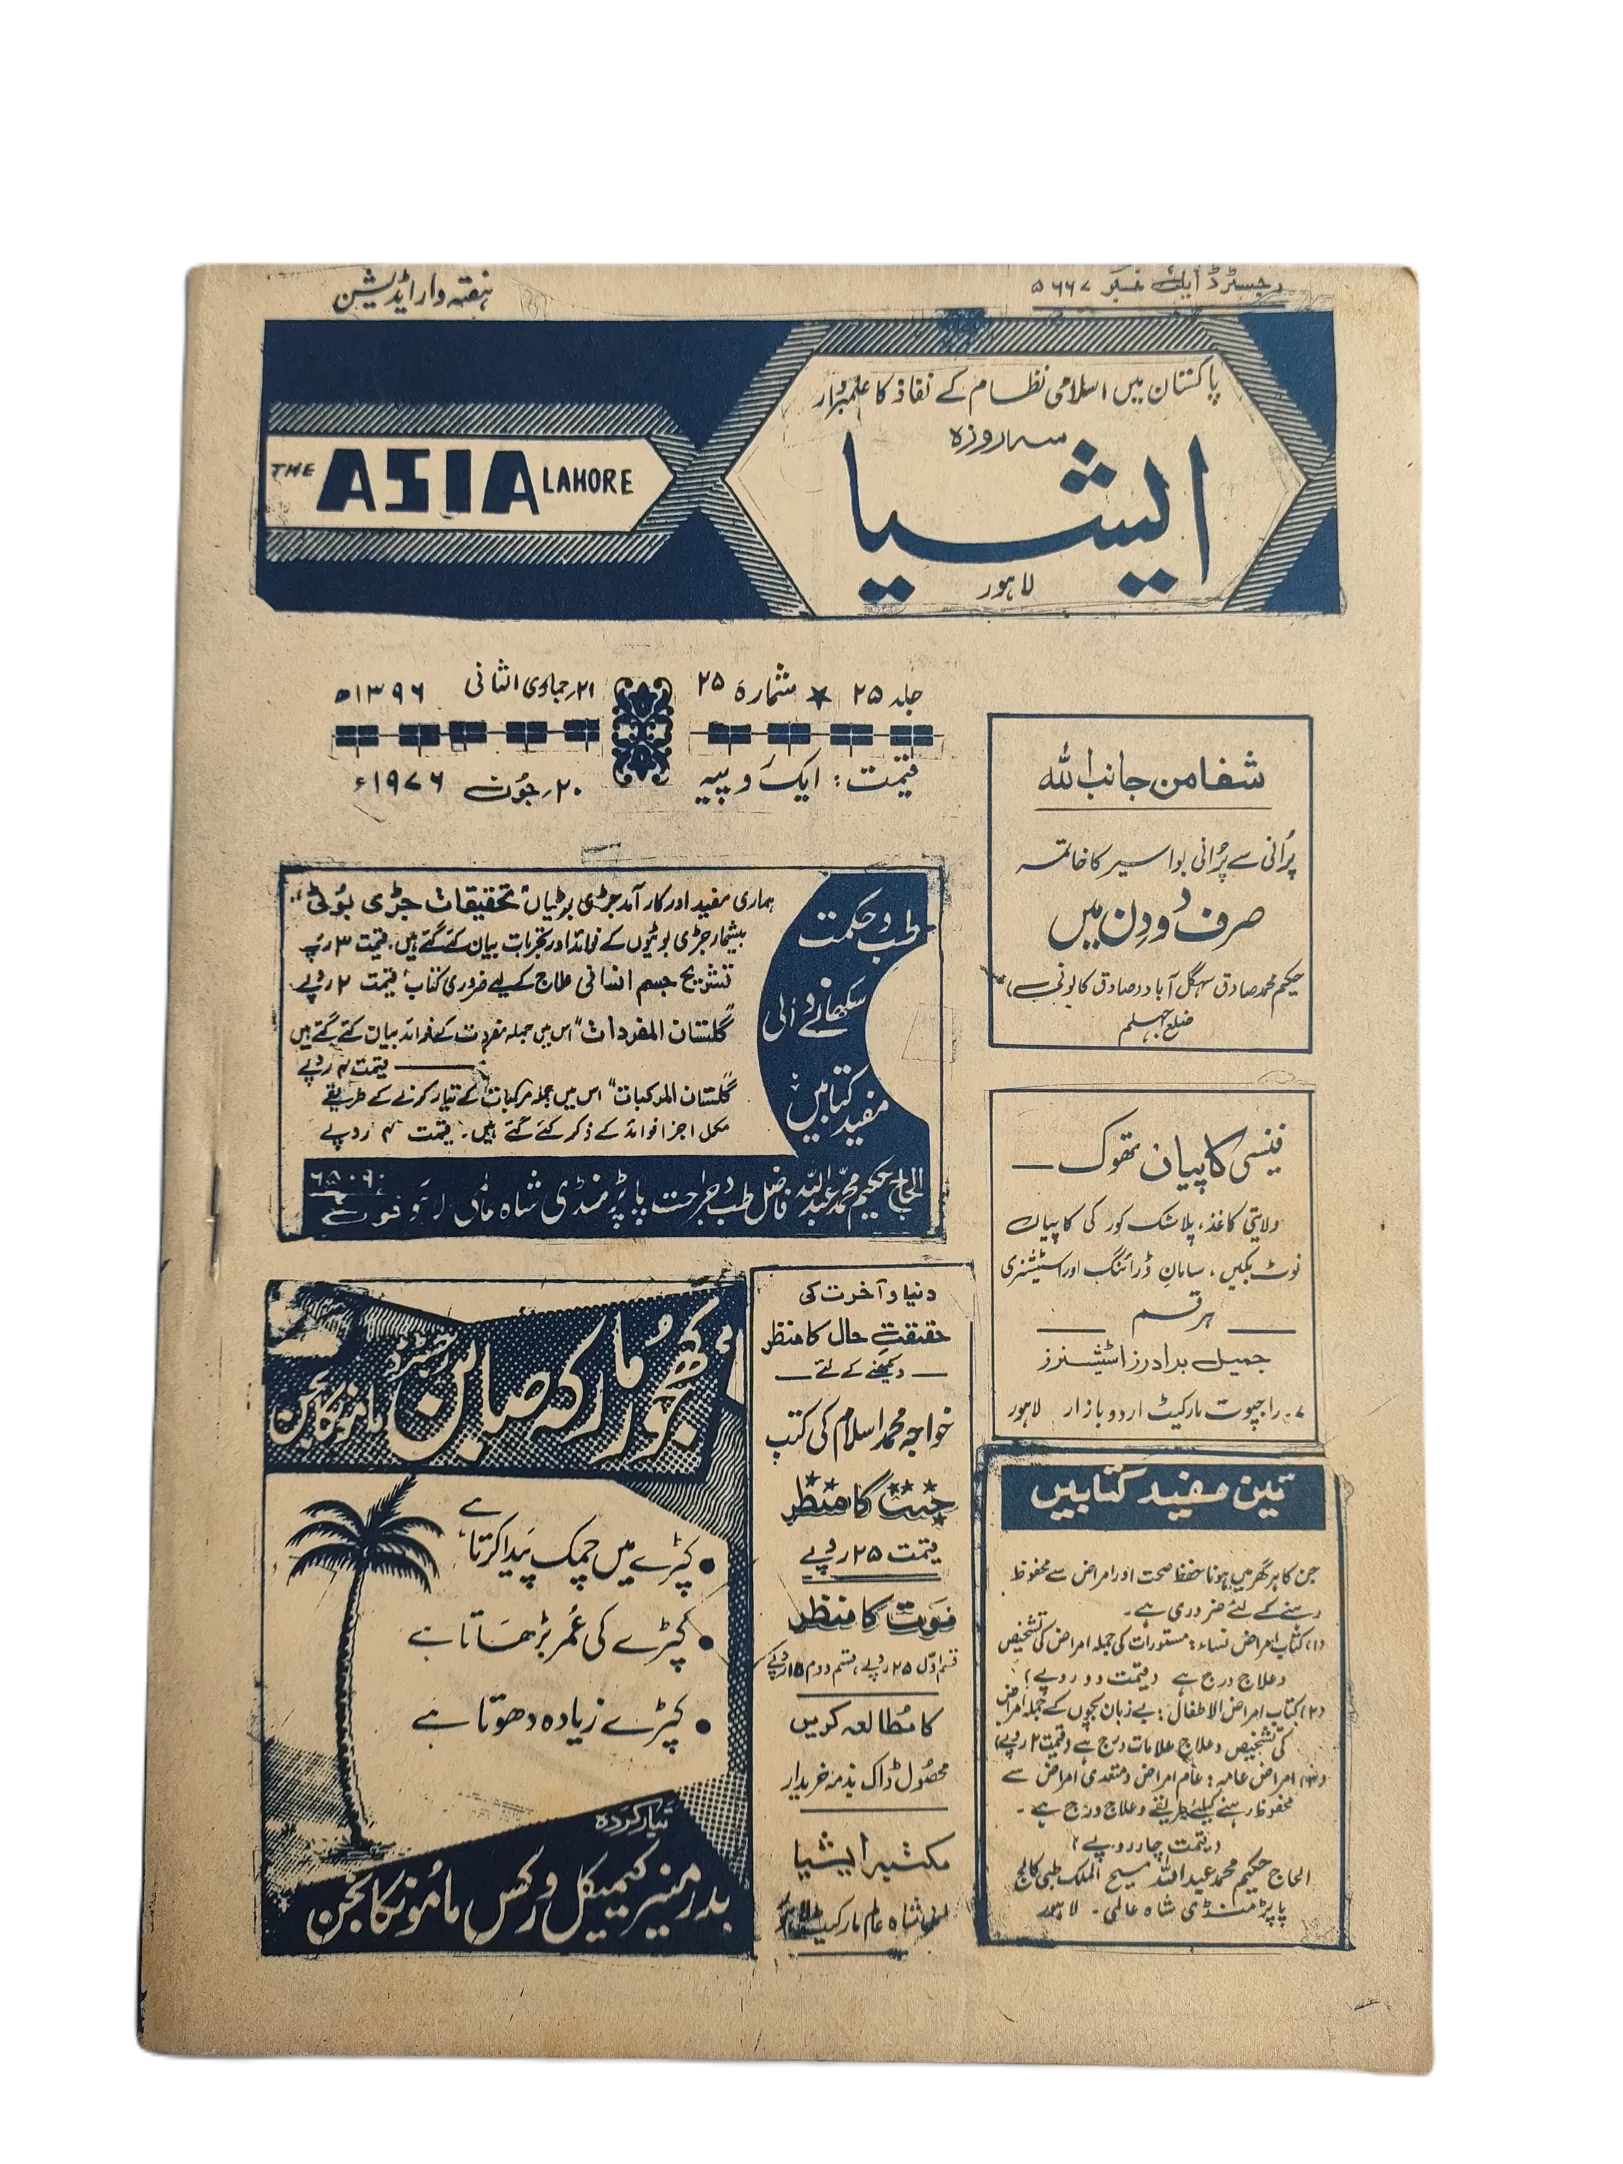 رجسٹرڈ ایل نمبر ۵۶۶۷
ہفتہ وار ایڈیشن
پاکستان میں اسلامی نظام کے نفاذ کا علمبردار
سہ روزہ
ایشیا
لاہور
THE ASIA LAHORE
جلد ۲۵ ★ شمارہ ۲۵
۲۱؍جمادی الثانی ۱۳۹۶ھ
قیمت: ایک روپیہ
۲۰؍جون ۱۹۷۶ء
شفا من جانب اللہ
پُرانی سے پُرانی بواسیر کا خاتمہ
صرف دو دِن میں
حکیم محمد صادق سہگل آباد (صادق کالونی)
ضلع جہلم
طب و حکمت
سکھانے والی
مفید کتابیں
ہماری مفید اور کار آمد جڑی بوٹیاں تحقیقات جڑی بُوٹی
بیشمار جڑی بوٹیوں کے فوائد اور تجربات بیان کئے گئے ہیں۔ قیمت ۳ روپے
تشریح جسم انسانی علاج کے لیے ضروری کتاب قیمت ۲ روپے
"گلستان المفردات" اس میں جملہ مفردات کے فوائد بیان کئے گئے ہیں
قیمت ۴ روپے
"گلستان المرکبات" اس میں جملہ مرکبات کے تیار کرنے کے طریقے
مکمل اجزا فوائد کے ذکر کئے گئے ہیں۔ قیمت ۴ روپے
الحاج حکیم محمد عبداللہ فاضل طب و جراحت پاپڑ منڈی شاہ عالمی لاہور فون ۶۵۰۶۰
فینسی کاپیاں تھوک
ولایتی کاغذ، پلاسٹک کور کی کاپیاں
نوٹ بکیں، سامانِ ڈرائنگ اور اسٹیشنری
ہر قسم
جمیل برادرز اسٹیشنرز
۷۔ راجپوت مارکیٹ اردو بازار لاہور
کھجور مارکہ صابن رجسٹرڈ
ماموں کانجن
• کپڑے میں چمک پَیدا کرتا ہے
• کپڑے کی عُمر بڑھاتا ہے
• کپڑے زیادہ دھوتا ہے
تیار کردہ
بدر منیر کیمیکل ورکس ماموں کانجن
دنیا و آخرت کی
حقیقتِ حال کا منظر
دیکھنے کے لئے
خواجہ محمد اسلام کی کتب
جنت کا منظر
قیمت ۲۵ روپے
موَت کا منظر
قسم اوّل ۲۵ روپے، قسم دوم ۱۵ روپے
کا مُطالعہ کریں
محصُول ڈاک بذمہ خریدار
مکتبہ ایشیا
شاہ عالم مارکیٹ لاہور
تین مفید کتابیں
جن کا ہر گھر میں ہونا حفظ صحت اور امراض سے محفوظ
رہنے کے لئے ضروری ہے۔
(۱) کتاب امراض نساء: مستورات کی جملہ امراض کی تشخیص
و علاج درج ہے (قیمت دو روپے)
(۲) کتاب امراض الاطفال: بے زبان بچوں کے جملہ امراض
کی تشخیص و علاج علامات درج ہے (قیمت ۲ روپے)
(۳) امراض عامہ: عام امراض و متعدی امراض سے
محفوظ رہنے کیلئے طریقے و علاج درج ہے۔
(قیمت چار روپے)
الحاج حکیم محمد عبداللہ مسیح الملک طبی کالج
پاپڑ منڈی شاہ عالمی۔ لاہور